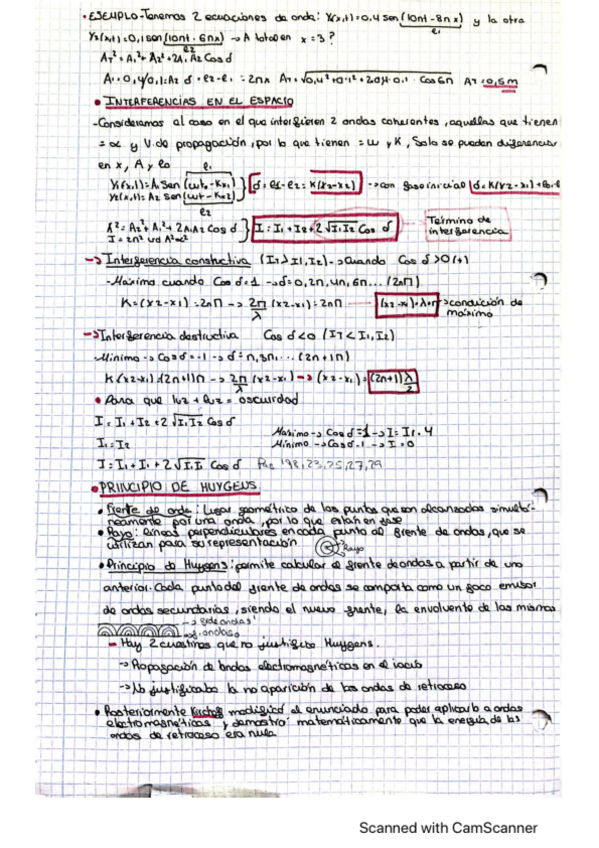 • EJEMPLO - Tenemos 2 ecuaciones de onda: Y(x,t)=0,4 sen(10πt-8πx) y la otra
e1
Y2(x,t)=0,1 sen(10πt-6πx) → A total en x=3?
e2
AT²=A1²+A2²+2A1A2 Cos δ
A1=0,4/0,1=A2 δ=e2-e1=2πx AT=√0,4²+0,1²+2·0,4·0,1·Cos6π AT=0,5m
• INTERFERENCIAS EN EL ESPACIO
-Consideramos al caso en el que interfieren 2 ondas coherentes, aquellas que tienen
= α y V. de propagación, por lo que tienen = ω y K, Solo se pueden diferenciar
en x, A y φo
e1
Y1(x,t)=A1 Sen(ωt-Kx1)
Y2(x,t)=A2 sen(ωt-Kx2)
e2
δ=e1-e2=K(x2-x1) → con fase inicial δ=K(x2-x1)+
A²=A2²+A1²+2A1A2 Cos δ
I = I1+I2+2√I1I2 Cos δ
Término de
interferencia
→ Interferencia constructiva (IT>I1,I2) → Cuando Cos δ>0(+)
-Máxima cuando Cos δ=1 → δ=0,2π,4π,6π...(2πn)
K=(x2-x1)=2πn → 2π/λ (x2-x1)=2πn → (x2-x1)=λ·n → condición de
máximo
→ Interferencia destructiva Cos δ<0 (IT<I1,I2)
-Mínimo → Cos δ=-1 → δ=π,3π...(2n+1)π
K(x2-x1)=(2n+1)π → 2π/λ (x2-x1) → (x2-x1)=(2n+1)λ/2
• Para que luz + luz = oscuridad
I = I1+I2+2√I1I2 Cos δ
I1=I2
Maximo → Cos δ=1 → I=I1·4
Mínimo → Cos δ-1 → I=0
I=I1+I1+2√I1I1 Cos δ
• PRINCIPIO DE HUYGENS
• Frente de onda: Lugar geométrico de los puntos que son alcanzados simultá-
neamente por una onda, por lo que están en fase
• Rayo: líneas perpendiculares en cada punto al frente de ondas, que se
utilizan para su representación
Rayo
• Principio de Huygens: permite calcular el frente de ondas a partir de uno
anterior. Cada punto del frente de ondas se comporta como un foco emisor
de ondas secundarias, siendo el nuevo frente, la envolvente de las mismas
- Hay 2 cuestiones que no justifico Huygens.
→ Propagación de ondas electromagnéticas en el vacío
→ No justificaba la no aparición de las ondas de retroceso
• Posteriormente Kirchoff modificó el enunciado para poder aplicarlo a ondas
electromagnéticas y demostró matemáticamente que la energía de las
ondas de retroceso era nula
Scanned with CamScanner